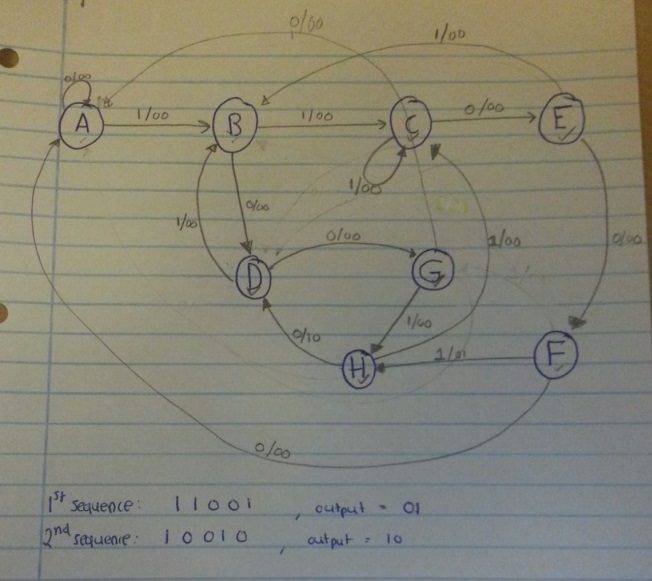 0/00
1/00
0/00
A 1/00 B 1/00 C 0/00 E
1/00
1/00 0/00 0/00 1/00 0/00
D G
0/10 1/00
H 1/01 F
0/00
1st sequence: 1 1 0 0 1 , output = 01
2nd sequence: 1 0 0 1 0 , output = 10